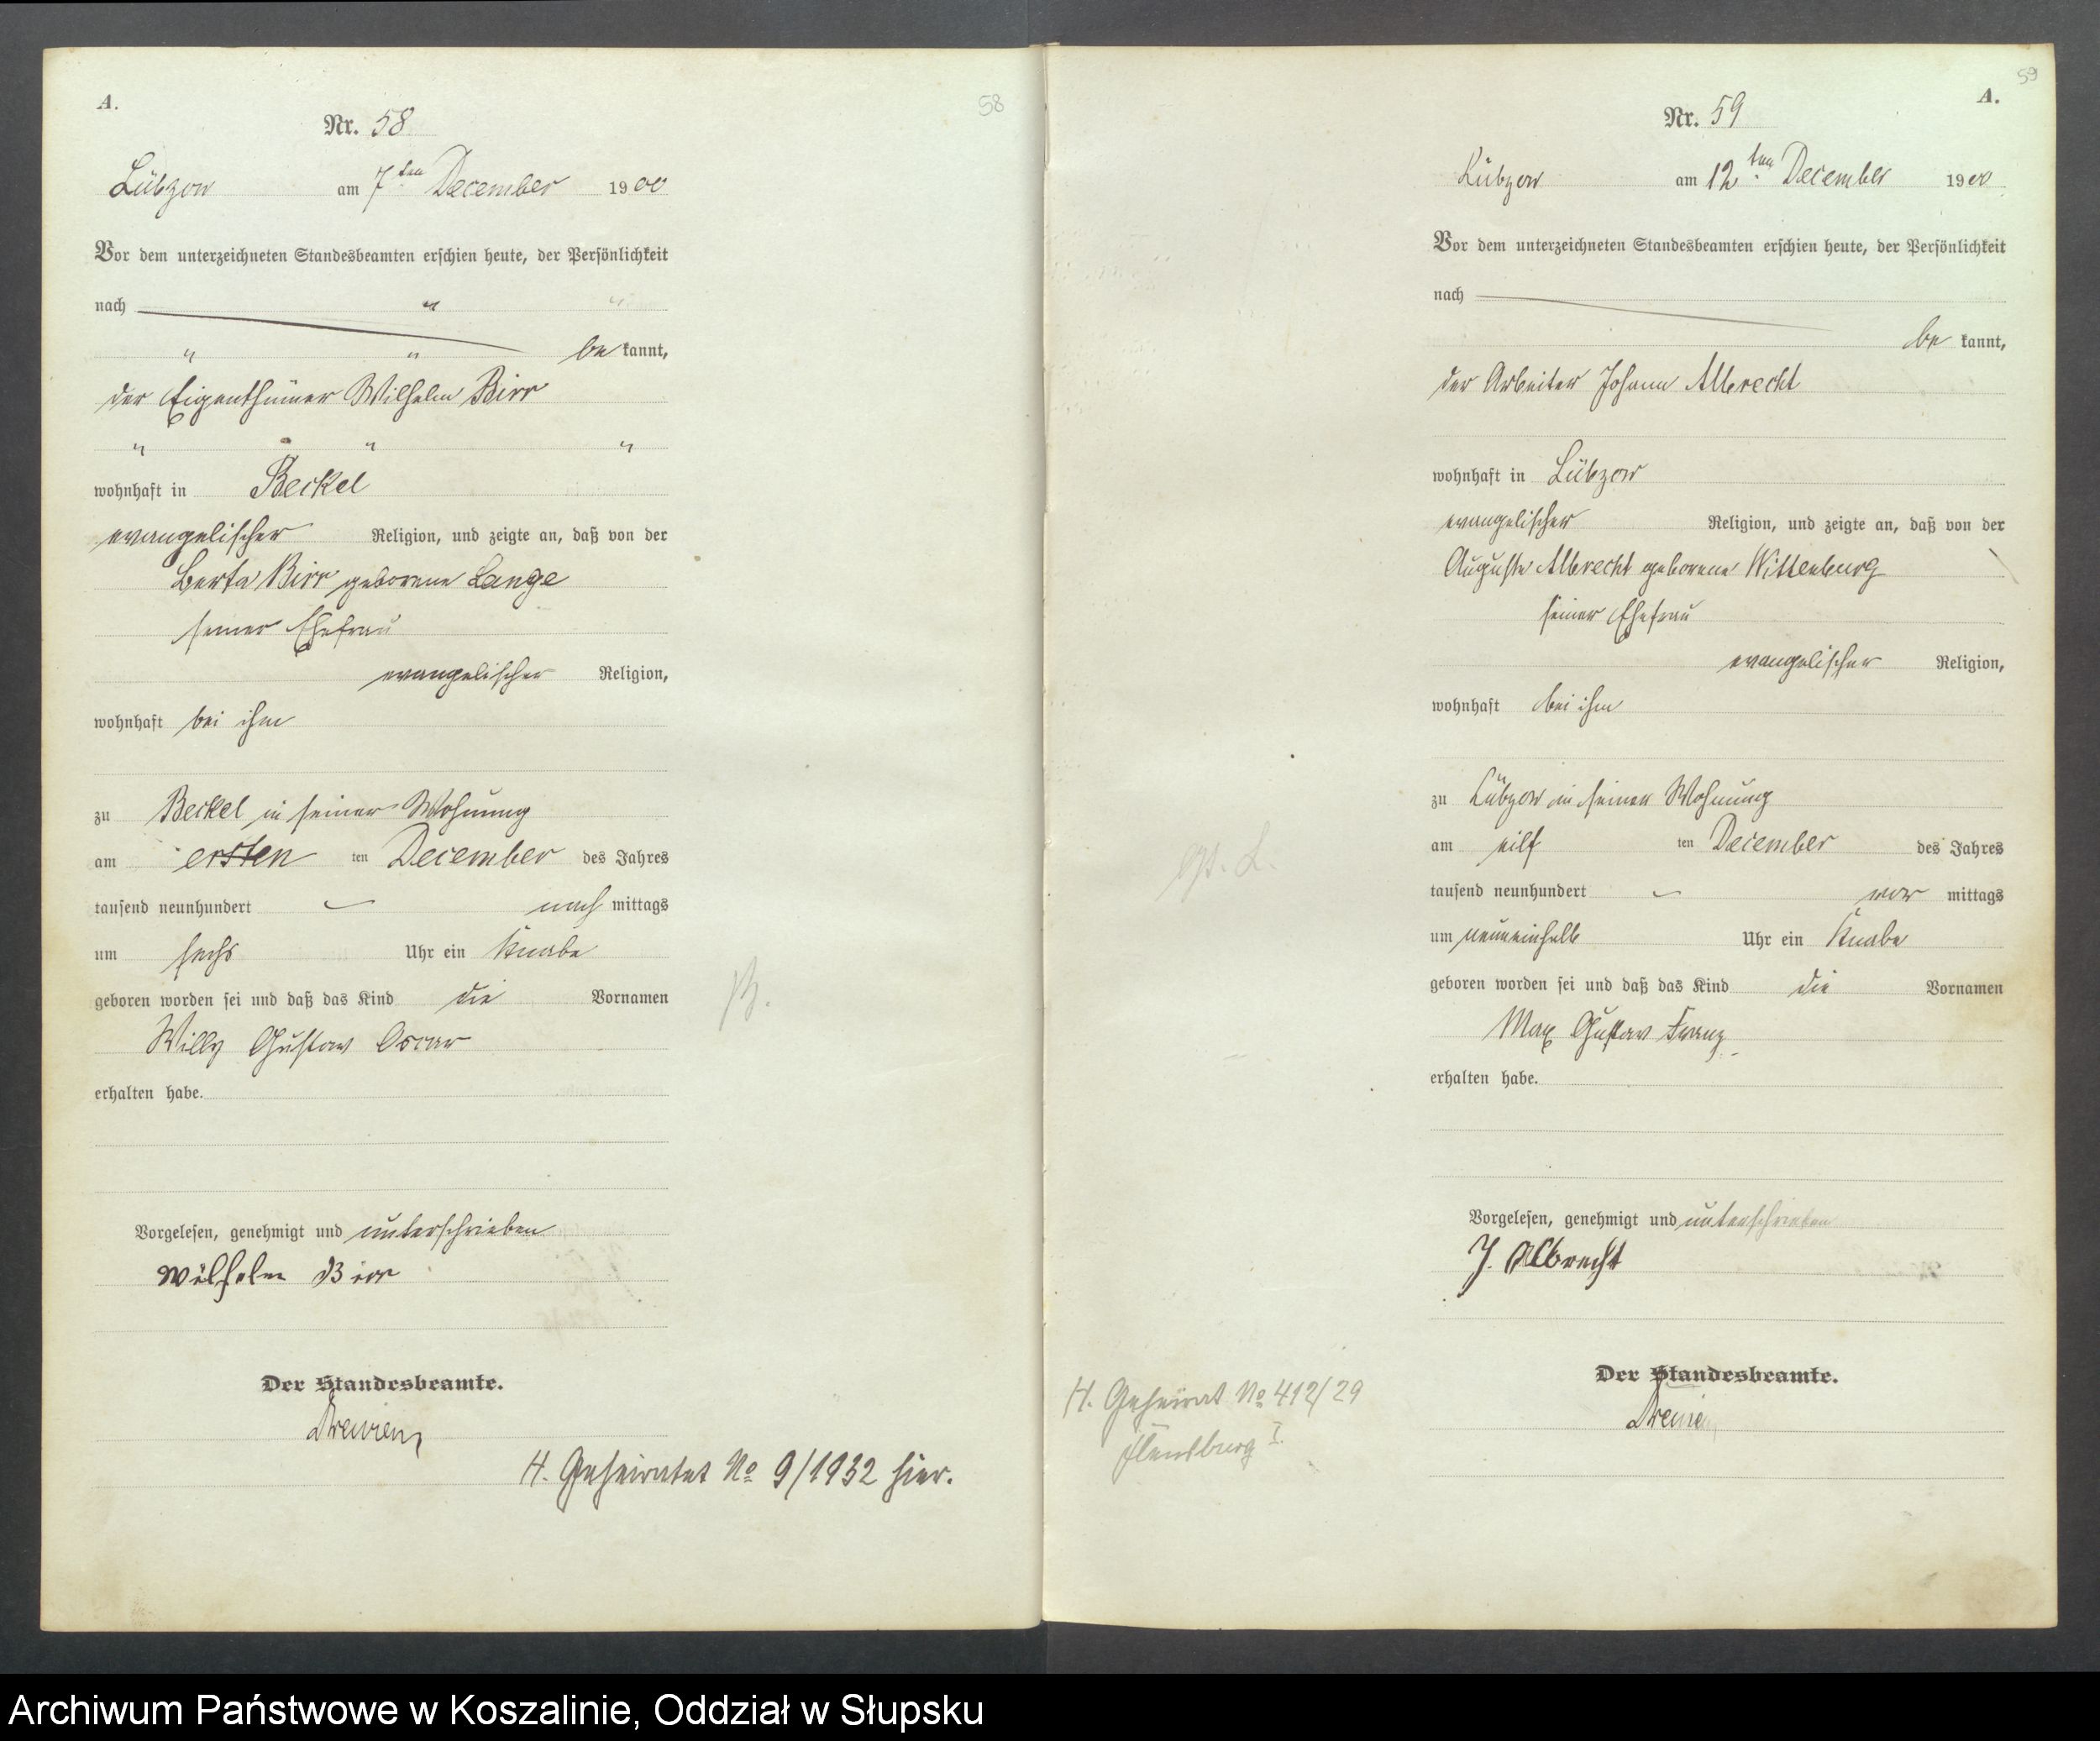 A.
58
Nr. 58
Lübzow am 7ten December 1900
Vor dem unterzeichneten Standesbeamten erschien heute, der Persönlichkeit
nach " "
" " be kannt,
der Eigenthümer Wilhelm Birr
" " "
wohnhaft in Beckel
evangelischer Religion, und zeigte an, daß von der
Berta Birr geborene Lange
seiner Ehefrau
evangelischer Religion,
wohnhaft bei ihm
zu Beckel in seiner Wohnung
am ersten ten December des Jahres
tausend neunhundert nach mittags
um sechs Uhr ein Knabe
geboren worden sei und daß das Kind die Vornamen
Willy Gustav Oscar
erhalten habe.
B.
Vorgelesen, genehmigt und unterschrieben
Wilhelm Birr
Der Standesbeamte.
H. Geheiratet No 9/1932 hier.
59
A.
Nr. 59
Lübzow am 12ten December 1900
Vor dem unterzeichneten Standesbeamten erschien heute, der Persönlichkeit
nach
be kannt,
der Arbeiter Johann Albrecht
wohnhaft in Lübzow
evangelischer Religion, und zeigte an, daß von der
Auguste Albrecht geborene Wittenburg
seiner Ehefrau
evangelischer Religion,
wohnhaft bei ihm
zu Lübzow in seiner Wohnung
am eilf ten December des Jahres
tausend neunhundert vor mittags
um neuneinhalb Uhr ein Knabe
geboren worden sei und daß das Kind die Vornamen
Max Gustav Franz
erhalten habe.
Vorgelesen, genehmigt und unterschrieben
J. Albrecht
Der Standesbeamte.
H. Geheirat No 412/29
Flensburg I.
Archiwum Państwowe w Koszalinie, Oddział w Słupsku